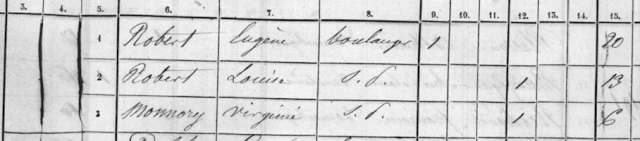 3. 4. 5. 6. 7. 8. 9. 10. 11. 12. 13. 14. 15.
1 Robert Eugène boulanger 1 20
2 Robert Louise s. p. 1 13
3 Monnory Virginie s. p. 1 6